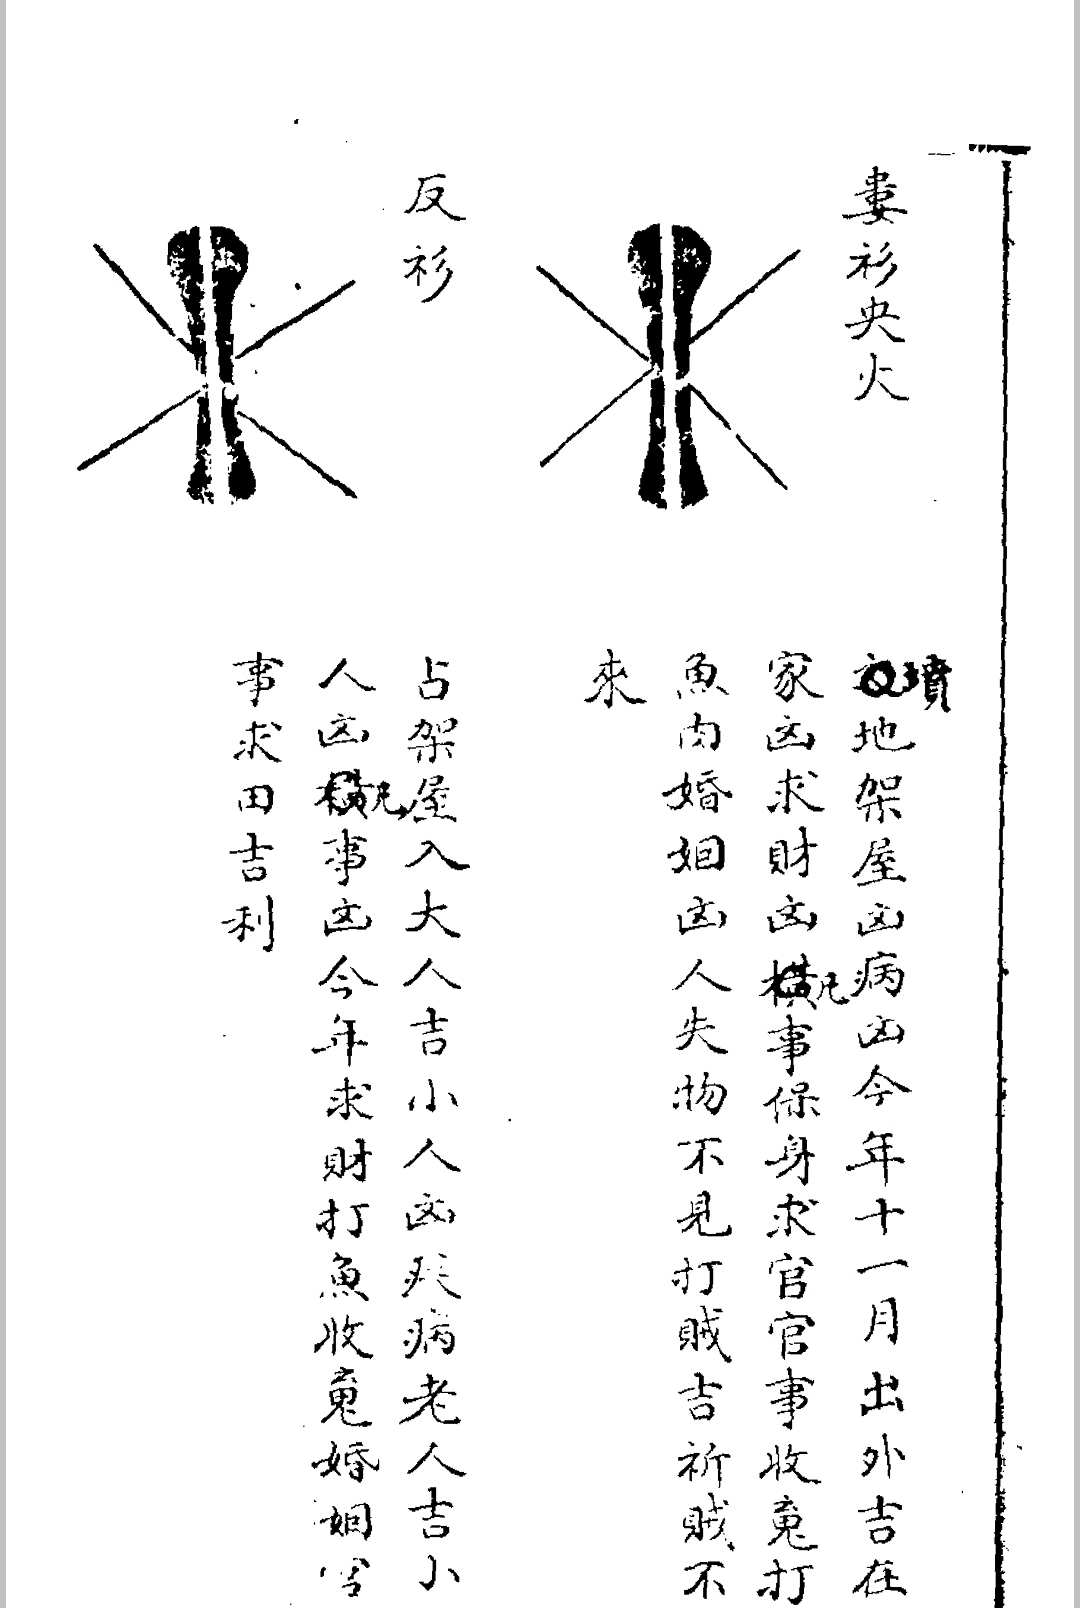 婁衫央火
墳地架屋凶病凶今年十一月出外吉在
家凶求財凶橫事保身求官官事收䰟打
魚肉婚姻凶人失物不見打賊吉祈賊不
來
反衫
占架屋入大人吉小人凶疾病老人吉小
人凶橫事凶今年求財打魚收䰟婚姻官
事求田吉利